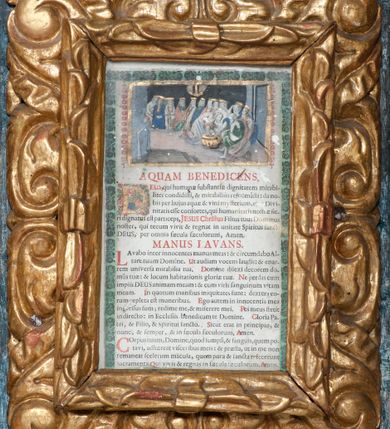 AQUAM BENEDICENS.
Deus, qui humanæ substantiæ dignitatem mirabi-
liter condidisti, & mirabilius reformasti: da no-
bis per hujus aquæ & vini mysterium, ejus Divi-
nitatis esse consortes, qui humanitatis nostræ fie-
ri dignatus est particeps, JESUS Christus Filius tuus Dominus
noster, qui tecum vivit & regnat in unitate Spiritus Sancti
DEUS, per omnia sæcula sæculorum, Amen.
MANUS LAVANS.
Lavabo inter innocentes manus meas: & circumdabo Al-
tare tuum Domine. Ut audiam vocem laudis: & enar-
rem universa mirabilia tua. Domine dilexi decorem do-
mus tuæ: & locum habitationis gloriæ tuæ. Ne perdas cum
impiis DEUS animam meam: & cum viris sanguinum vitam
meam. In quorum manibus iniquitates sunt: dextera eo-
rum repleta est muneribus. Ego autem in innocentia mea
ingressus sum; redime me, & miserere mei. Pes meus stetit
in directo: in Ecclesiis benedicam te Domine. Gloria Pa-
tri, & Filio, & Spiritui sancto. Sicut erat in principio, &
nunc, & semper, & in sæcula sæculorum, Amen.
Corpus tuum, Domine, quod sumpsi, & sanguis, quem po-
tavi, adhæreat visceribus meis: & præsta, ut in me non
remaneat scelerum macula, quem pura & sancta refecerunt
sacramenta. Qui vivis & regnas in sæcula sæculorum, Amen.